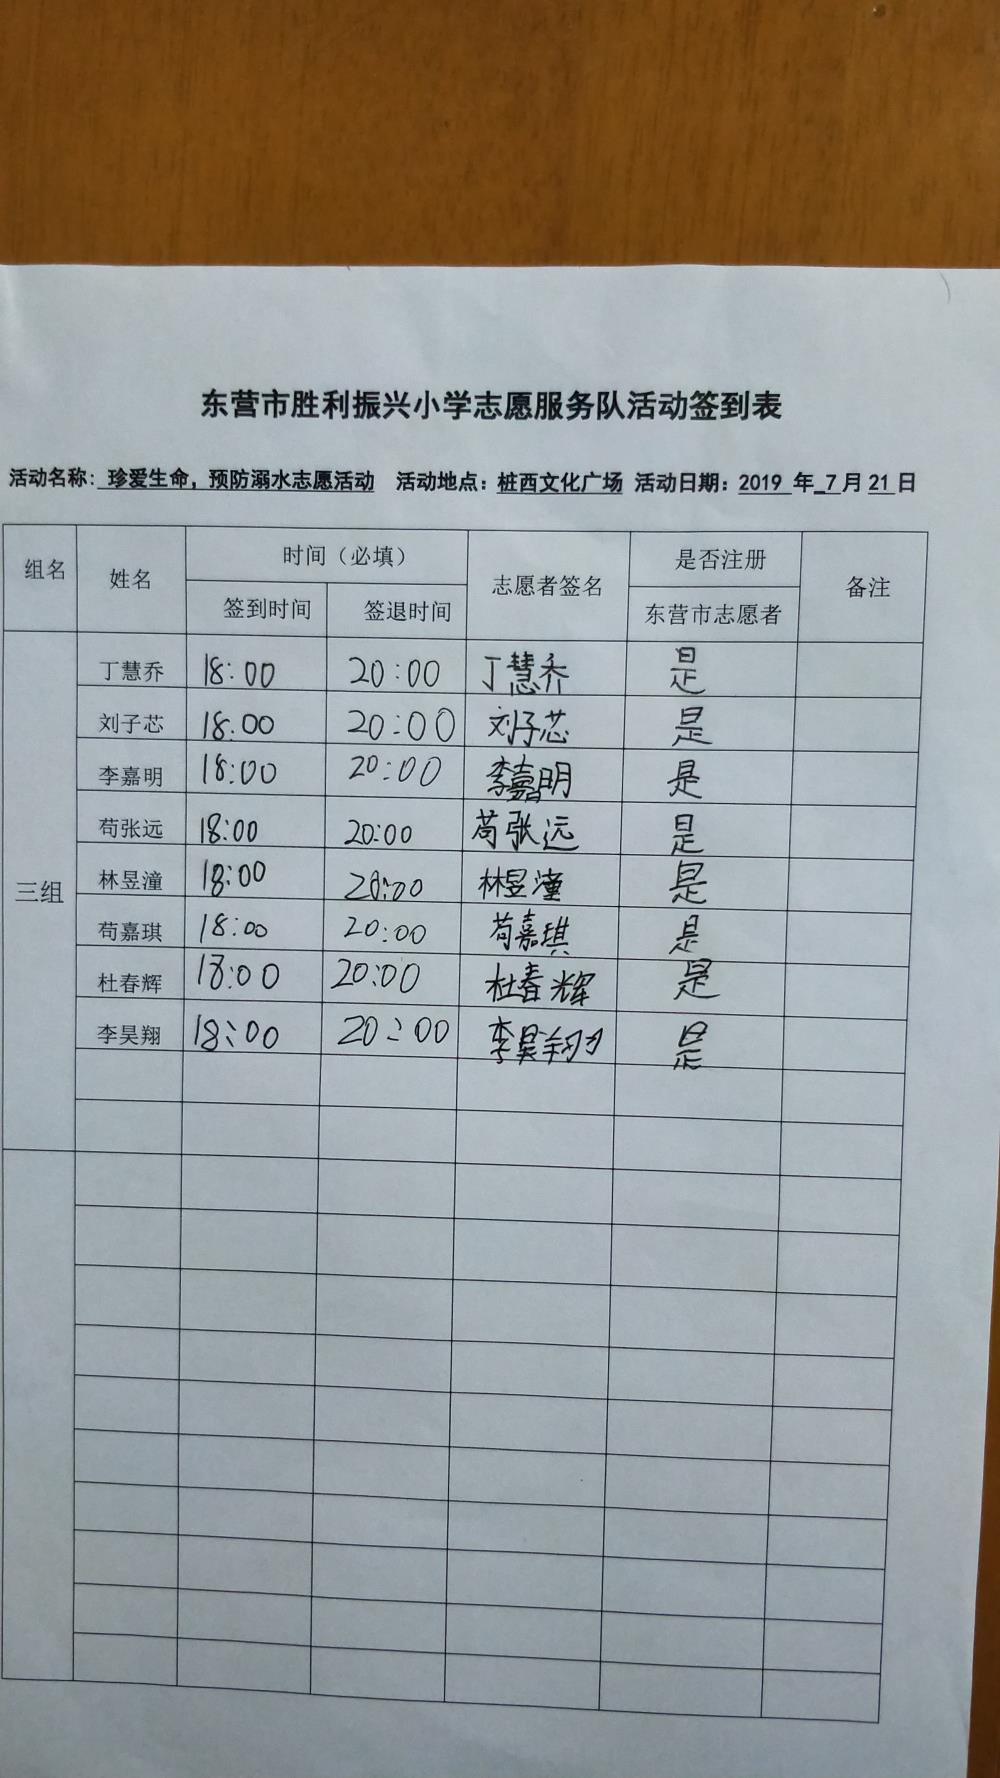 东营市胜利振兴小学志愿服务队活动签到表
活动名称：珍爱生命，预防溺水志愿活动 活动地点：桩西文化广场 活动日期：2019 年 7 月 21 日
组名 姓名 时间（必填） 志愿者签名 是否注册 备注
签到时间 签退时间 东营市志愿者
三组
丁慧乔 18:00 20:00 丁慧乔 是
刘子芯 18:00 20:00 刘子芯 是
李嘉明 18:00 20:00 李嘉明 是
苟张远 18:00 20:00 苟张远 是
林昱潼 18:00 20:00 林昱潼 是
苟嘉琪 18:00 20:00 苟嘉琪 是
杜春辉 18:00 20:00 杜春辉 是
李昊翔 18:00 20:00 李昊翔 是